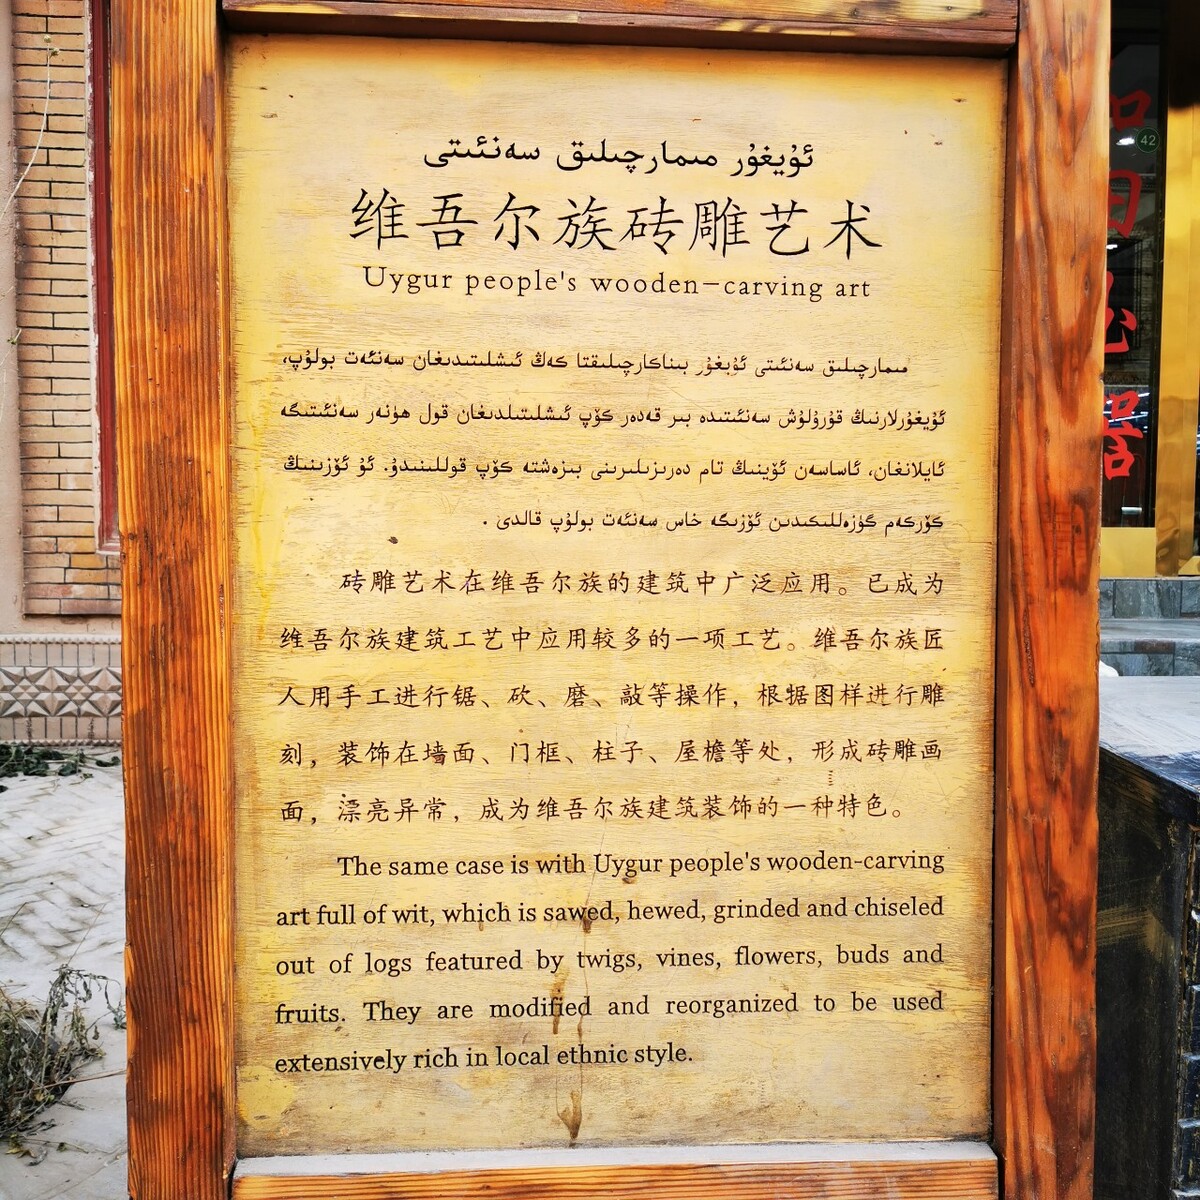 ئۇيغۇر مىمارچىلىق سەنئىتى
维吾尔族砖雕艺术
Uygur people's wooden-carving art
مىمارچىلىق سەنئىتى ئۇيغۇر بىناكارچىلىقتا كەڭ ئىشلىتىدىغان سەنئەت بولۇپ،
ئۇيغۇرلارنىڭ قۇرۇلۇش سەنئىتىدە بىر قەدەر كۆپ ئىشلىتىلدىغان قول ھۈنەر سەنئىتىگە
ئايلانغان، ئاساسەن ئۆينىڭ تام دەرىزىلىرىنى بىزەشتە كۆپ قوللىنىدۇ. ئۇ ئۆزىنىڭ
كۆركەم گۈزەللىكىدىن ئۆزىگە خاس سەنئەت بولۇپ قالدى .
砖雕艺术在维吾尔族的建筑中广泛应用。已成为
维吾尔族建筑工艺中应用较多的一项工艺。维吾尔族匠
人用手工进行锯、砍、磨、敲等操作，根据图样进行雕
刻，装饰在墙面、门框、柱子、屋檐等处，形成砖雕画
面，漂亮异常，成为维吾尔族建筑装饰的一种特色。
The same case is with Uygur people's wooden-carving
art full of wit, which is sawed, hewed, grinded and chiseled
out of logs featured by twigs, vines, flowers, buds and
fruits. They are modified and reorganized to be used
extensively rich in local ethnic style.
42